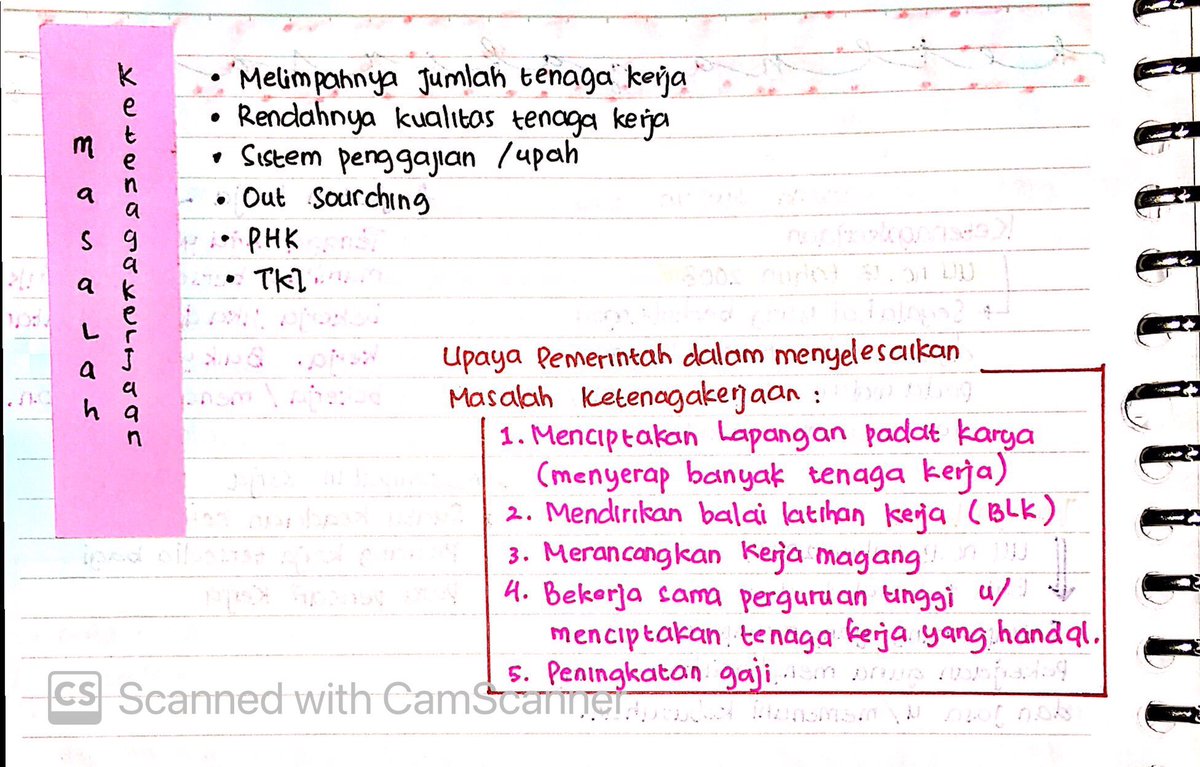 Masalah
Ketenagakerjaan
• Melimpahnya jumlah tenaga kerja
• Rendahnya kualitas tenaga kerja
• Sistem penggajian / upah
• Out Sourching
• PHK
• TKI
Upaya Pemerintah dalam menyelesaikan
Masalah Ketenagakerjaan :
1. Menciptakan Lapangan padat karya
(menyerap banyak tenaga kerja)
2. Mendirikan balai latihan kerja (BLK)
3. Merancangkan kerja magang
4. Bekerja sama perguruan tinggi u/
menciptakan tenaga kerja yang handal.
5. Peningkatan gaji
CS Scanned with CamScanner